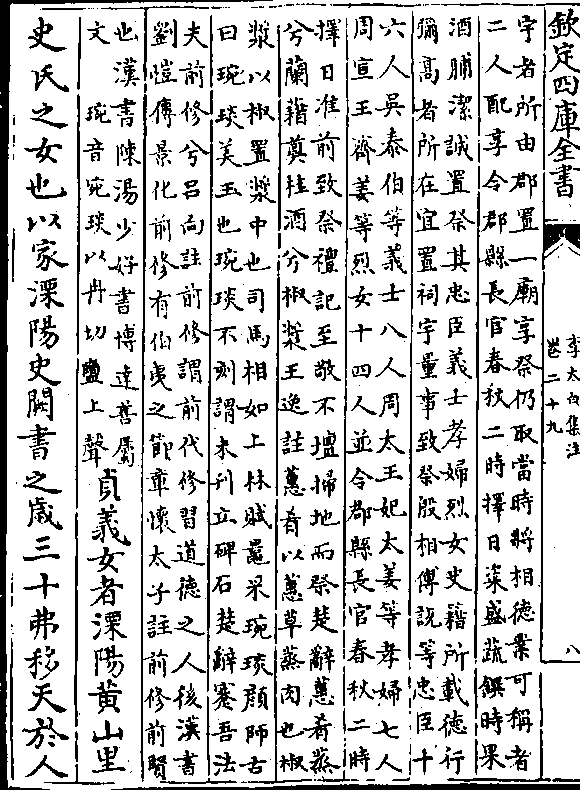 欽定四庫全書
李太白集注
卷二十九
八
宇者所由郡置一廟享祭仍取當時將相德業可稱者
二人配享令郡縣長官春秋二時擇日粢盛蔬饌時果
酒脯潔誠置祭其忠臣義士孝婦烈女史籍所載德行
彌高者所在宜置祠宇量事致祭殷相傅說等忠臣十
六人吳泰伯等義士八人周太王妃太姜等孝婦七人
周宣王齊姜等烈女十四人並令郡縣長官春秋二時
擇日准前致祭禮記至敬不壇掃地而祭楚辭蕙肴蒸
兮蘭藉奠桂酒兮椒漿王逸註蕙肴以蕙草蒸肉也椒
漿以椒置漿中也司馬相如上林賦鼂采琬琰顔師古
曰琬琰美玉也琬琰不刻謂未刊立碑石楚辭蹇吾法
夫前修兮呂向註前修謂前代修習道德之人後漢書
劉愷傳景化前修有伯夷之節章懷太子註前修前賢
也漢書陳湯少好書博達善屬
文　琬音宛琰以冉切鹽上聲
貞義女者溧陽黄山里
史氏之女也以家溧陽史闕書之歲三十弗移天於人